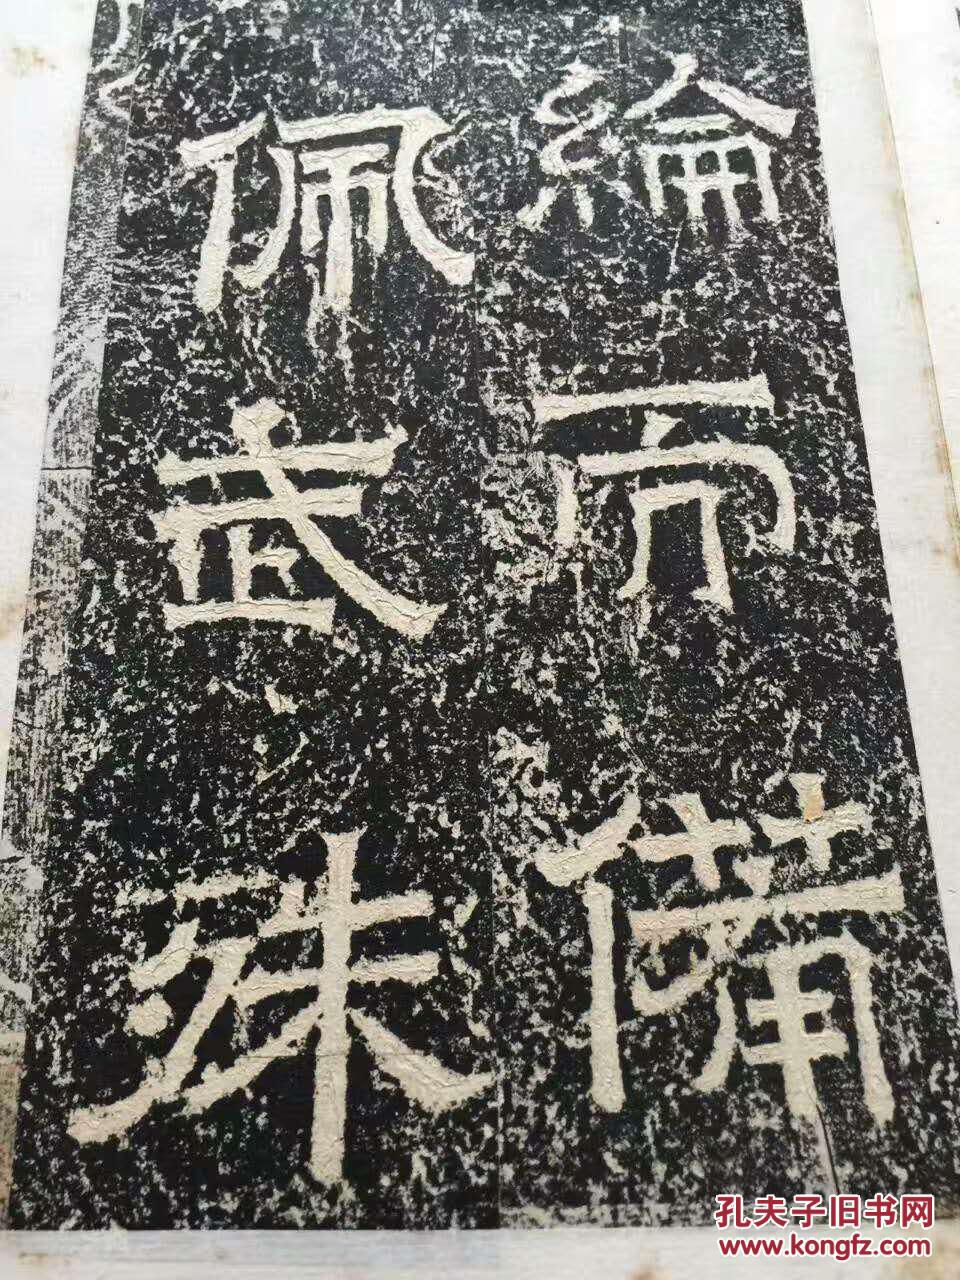 綸而備
佩武殊
孔夫子旧书网
www.kongfz.com